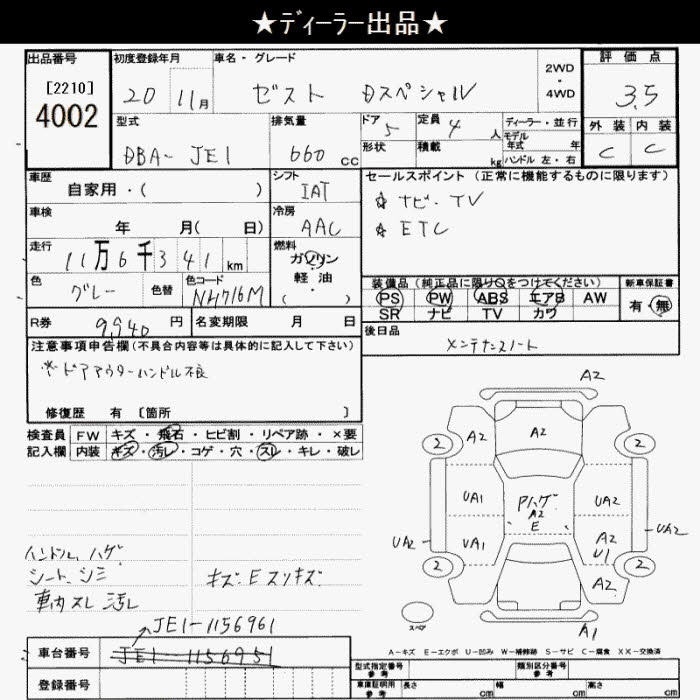 ★ディーラー出品★
出品番号 初度登録年月 車名・グレード 2WD・4WD 評価点
[2210] 4002 20 11月 ゼスト Dスペシャル 3.5
型式 排気量 ドア 定員 ディーラー・並行 外装 内装
DBA-JE1 660cc 5 4人 モデル年式 年 C C
形状 積載 kg ハンドル 左・右
車歴 シフト セールスポイント (正常に機能するものに限ります)
自家用・( ) IAT ☆ナビ・TV
車検 冷房 ☆ETC
年 月( 日) AAC
走行 燃料
11万6千341km ガソリン
軽油
( )
色 色替 色コード 装備品(純正品に限り○をつけてください) 新車保証書
グレー NH716M PS PW ABS エアB AW 有・無
SR ナビ TV カワ
R券 9,940円 名変期限 月 日 後日品
注意事項申告欄(不具合内容等は具体的に記入して下さい) メンテナンスノート
※ドアアウターハンドル不良
修復歴 有 [箇所 ]
検査員 FW キズ・飛石・ヒビ割・リペア跡・×要
記入欄 内装 キズ・汚レ・コゲ・穴・スレ・キレ・破レ
A2
2 A2 A2 2
UA1 Pハゲ UA2
A2
E
UA2 UA1 A2 UA2
U1
2 A2 2
A1
スペア
ハンドル ハゲ
シート シミ キズ・E スリキズ
車内 スレ 汚レ
A-キズ E-エクボ U-凹み W-補修跡 S-サビ C-腐食 XX-交換済
JE1-1156961
車台番号 JE1-1156951 型式指定番号 参考 類別区分番号 参考
登録番号 車庫証明用 参考 長さ cm 幅 cm 高さ cm